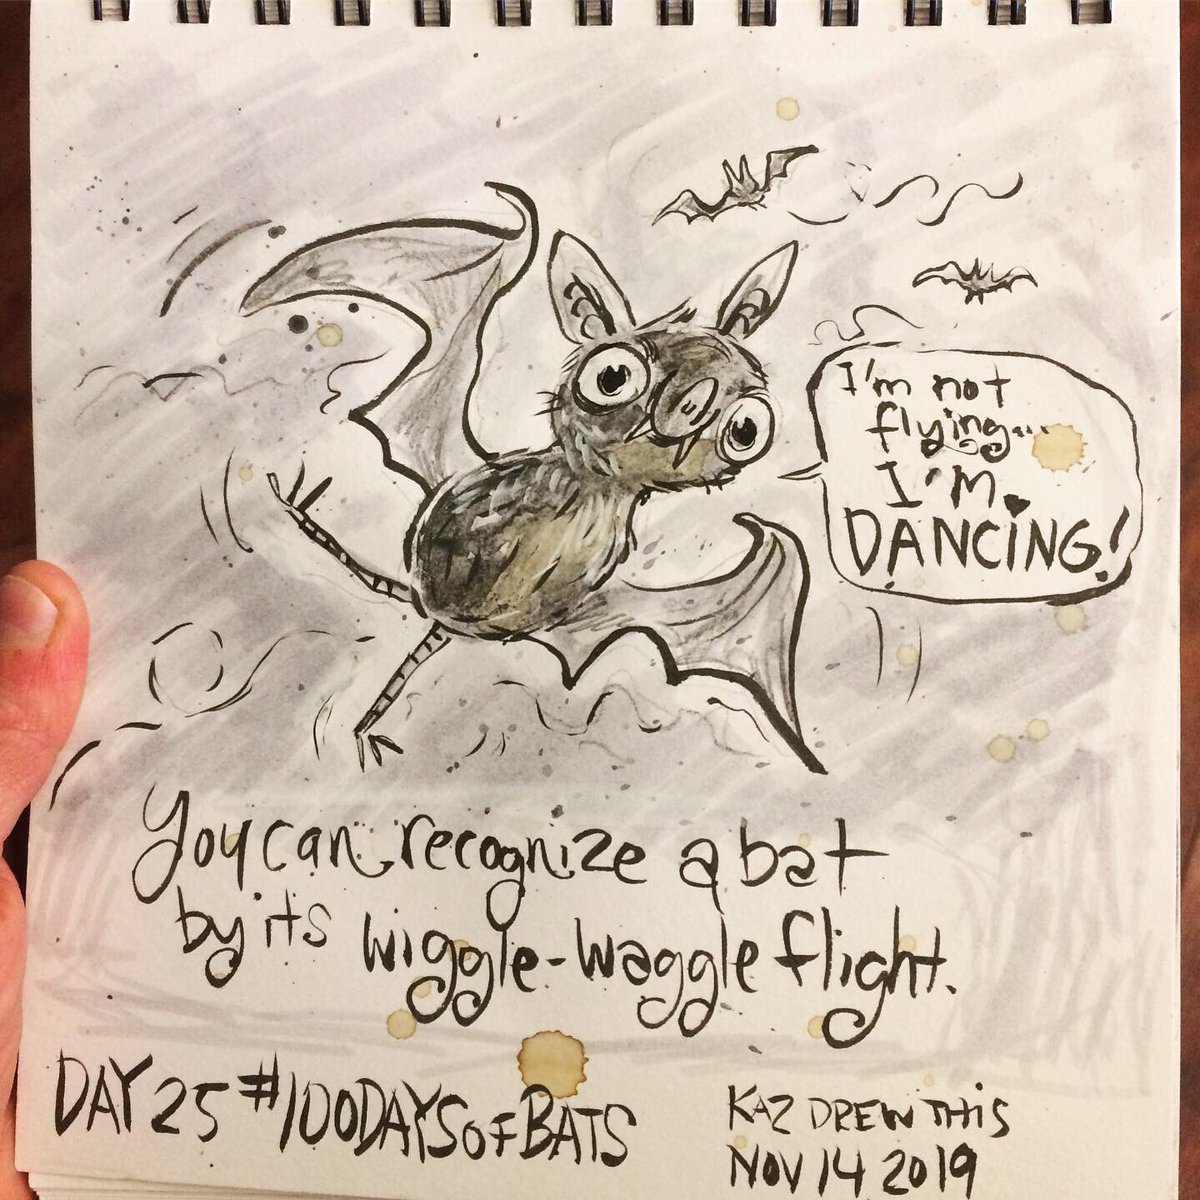 I'm not
flying...
I'M
DANCING!
You can recognize a bat
by its wiggle-waggle flight.
DAY 25 #100DAYSOFBATS
KAZ DREW THIS
NOV 14 2019